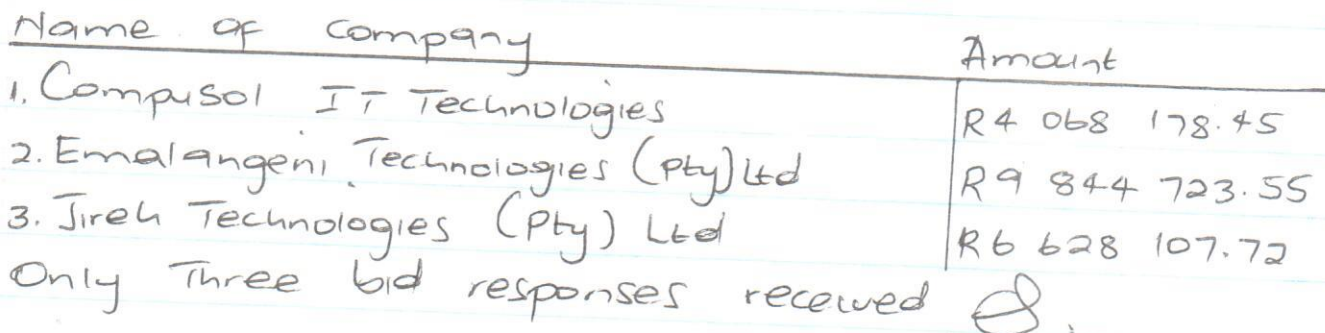 Name of company Amount
1. Compusol IT Technologies R4 068 178.45
2. Emalangeni Technologies (Pty) Ltd R9 844 723.55
3. Jireh Technologies (Pty) Ltd R6 628 107.72
Only Three bid responses received